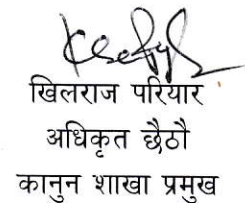 खिलराज परियार
अधिकृत छैठौ
कानुन शाखा प्रमुख